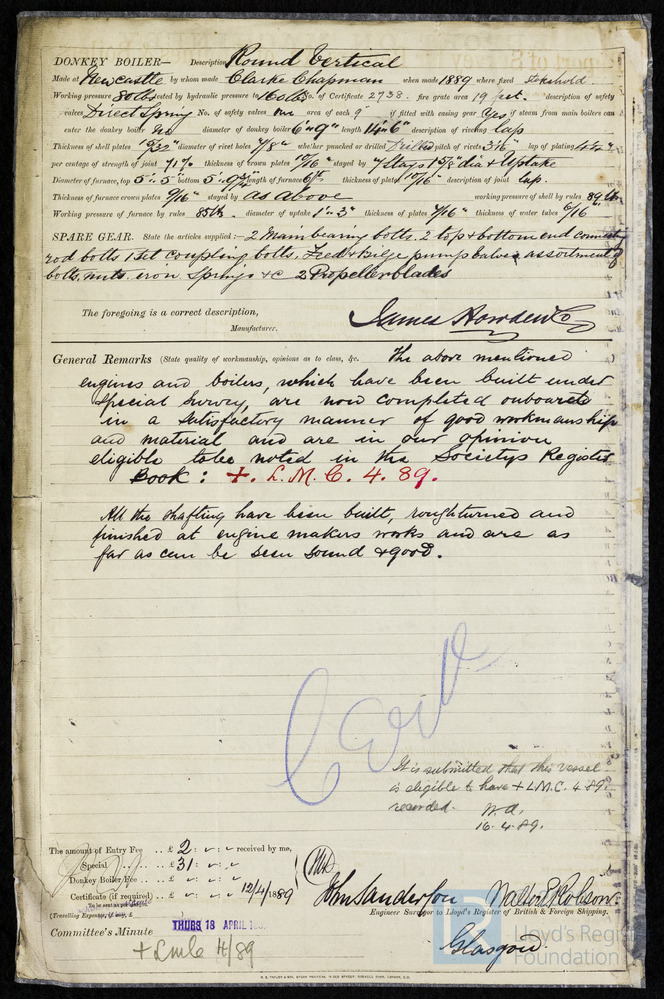 DONKEY BOILER— Description Round Vertical
Made at Newcastle by whom made Clarke Chapman when made 1889 where fixed Stokehold
Working pressure 80 lbs tested by hydraulic pressure to 160 lbs No. of Certificate 2738. fire grate area 19 feet. description of safety
valves Direct Spring No. of safety valves one area of each 9" if fitted with easing gear Yes if steam from main boilers can
enter the donkey boiler No diameter of donkey boiler 6'..9" length 14..6" description of riveting lap
Thickness of shell plates 19/32" diameter of rivet holes 7/8" whether punched or drilled Drilled pitch of rivets lap of plating
per centage of strength of joint 71% thickness of crown plates 10/16" stayed by 7 Stays 1 5/8" dia & Uptake
Diameter of furnace, top 5'..5" bottom length of furnace thickness of plates 10/16" description of joint Lap.
Thickness of furnace crown plates 9/16" stayed by as above working pressure of shell by rules 89 lbs
Working pressure of furnace by rules 85 lbs. diameter of uptake 1'..3" thickness of plates 7/16" thickness of water tubes 6/16"
SPARE GEAR. State the articles supplied:— 2 Main bearing bolts. 2 top & bottom end connecting
rod bolts 1 set coupling bolts, Feed & bilge pump valves, assortment of
bolts, nuts. iron. Springs &c 2 Propeller blades
The foregoing is a correct description,
James Howden & Co
Manufacturer.
General Remarks (State quality of workmanship, opinions as to class, &c. The above mentioned
engines and boilers, which have been built under
special survey, are now completed onboard
in a satisfactory manner of good workmanship
and material and are in our opinion
eligible to be noted in the Societys Register
Book: +. L.M.C. 4. 89.
All the shafting have been built, rough turned and
finished at engine makers works and are as
far as can be seen sound & good.
It is submitted that this vessel
is eligible to have + LMC. 4.89.
recorded. W.A.
16.4.89.
The amount of Entry Fee .. £ 2 : received by me,
Special .. £ 31 :
Donkey Boiler Fee .. £
Certificate (if required) .. £ 12/4/1889
To be sent as per margin
(Travelling Expenses, if any, £
John Sanderson Walter Robson.
Engineer Surveyor to Lloyd's Register of British & Foreign Shipping.
Committee's Minute THURS 18 APRIL
+ Lmc 4/89
Glasgow.
Lloyd's Register
Foundation